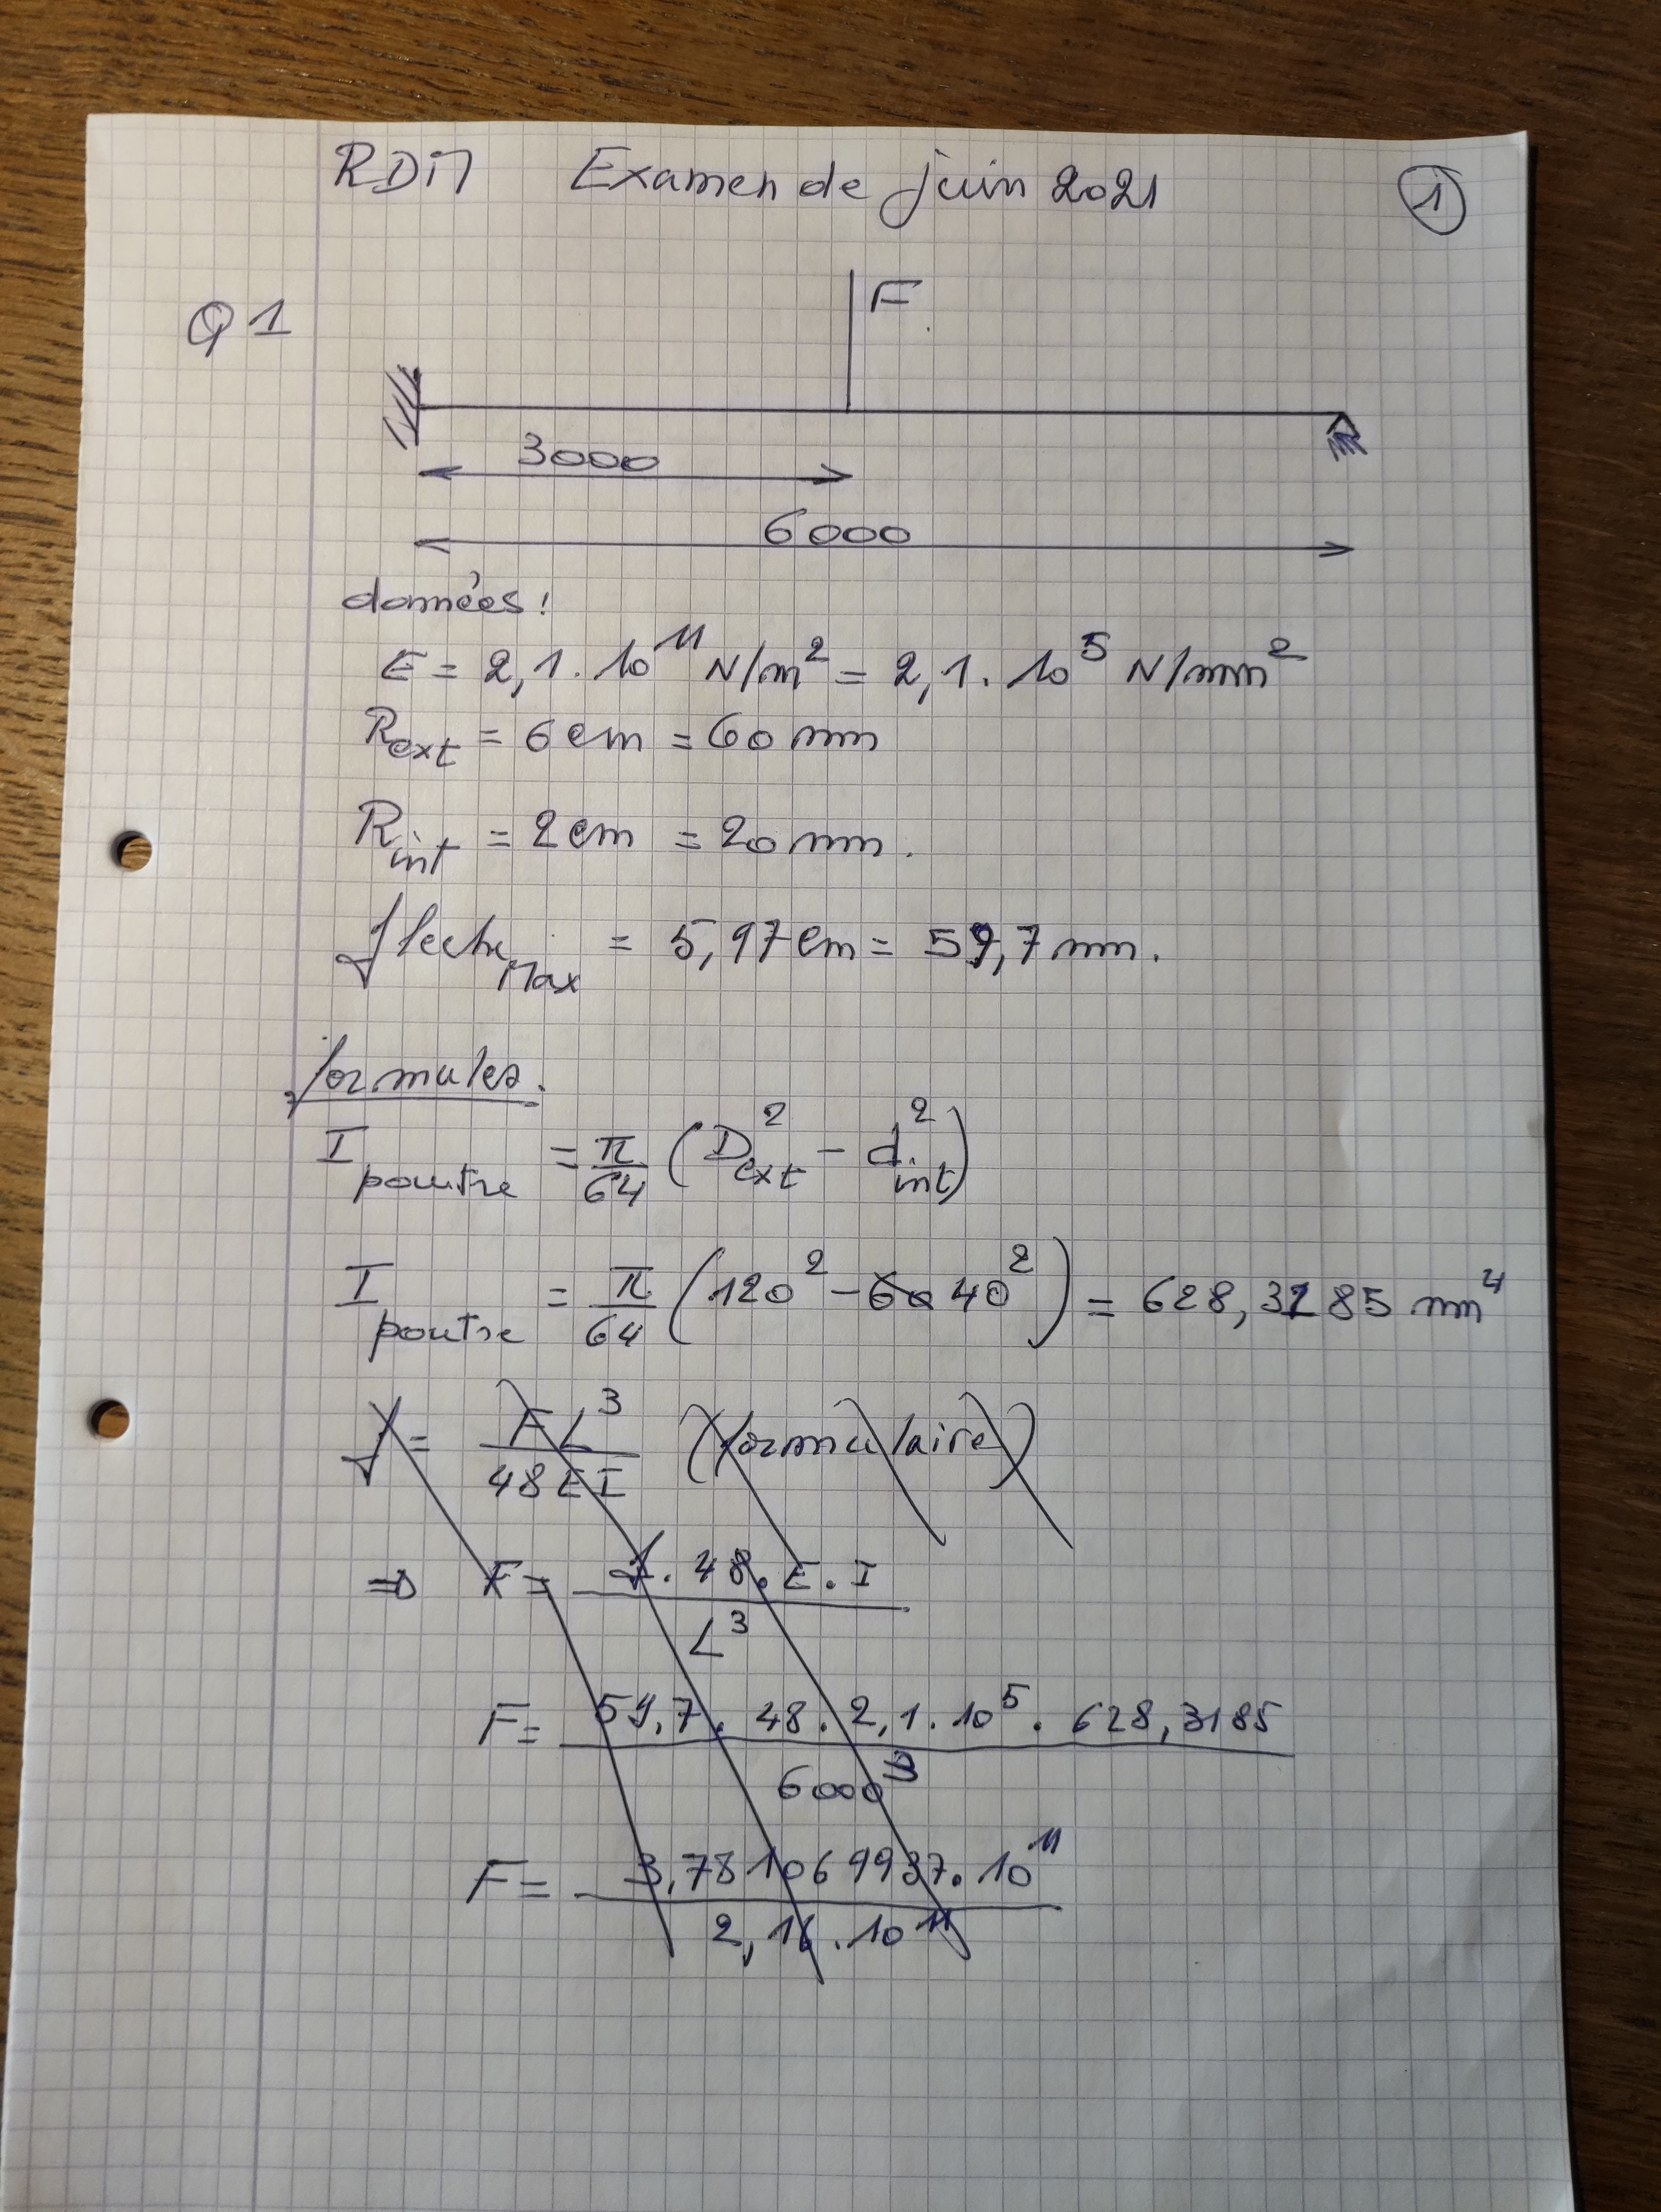 RDM Examen de juin 2021 1
Q1
F
3000
6000
données:
E = 2,1 . 10^11 N/m² = 2,1 . 10^5 N/mm²
R_ext = 6 cm = 60 mm
R_int = 2 cm = 20 mm.
fleche_Max = 5,97 cm = 59,7 mm.
formules.
I_poutre = π/64 (D_ext² - d_int²)
I_poutre = π/64 (120² - 60 40²) = 628,3185 mm⁴
f = FL³/48EI (formulaire)
=> F = f . 48 . E . I / L³
F = 59,7 . 48 . 2,1 . 10^5 . 628,3185 / 6000³
F = 3,781069937 . 10^11 / 2,16 . 10^11